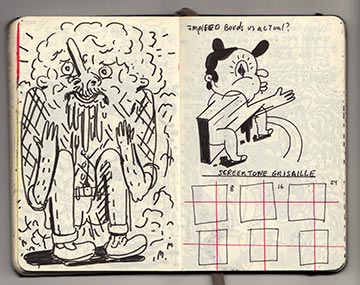 IMPLIED Bords vs actual?
SCREENTONE GRISAILLE
8 16 24